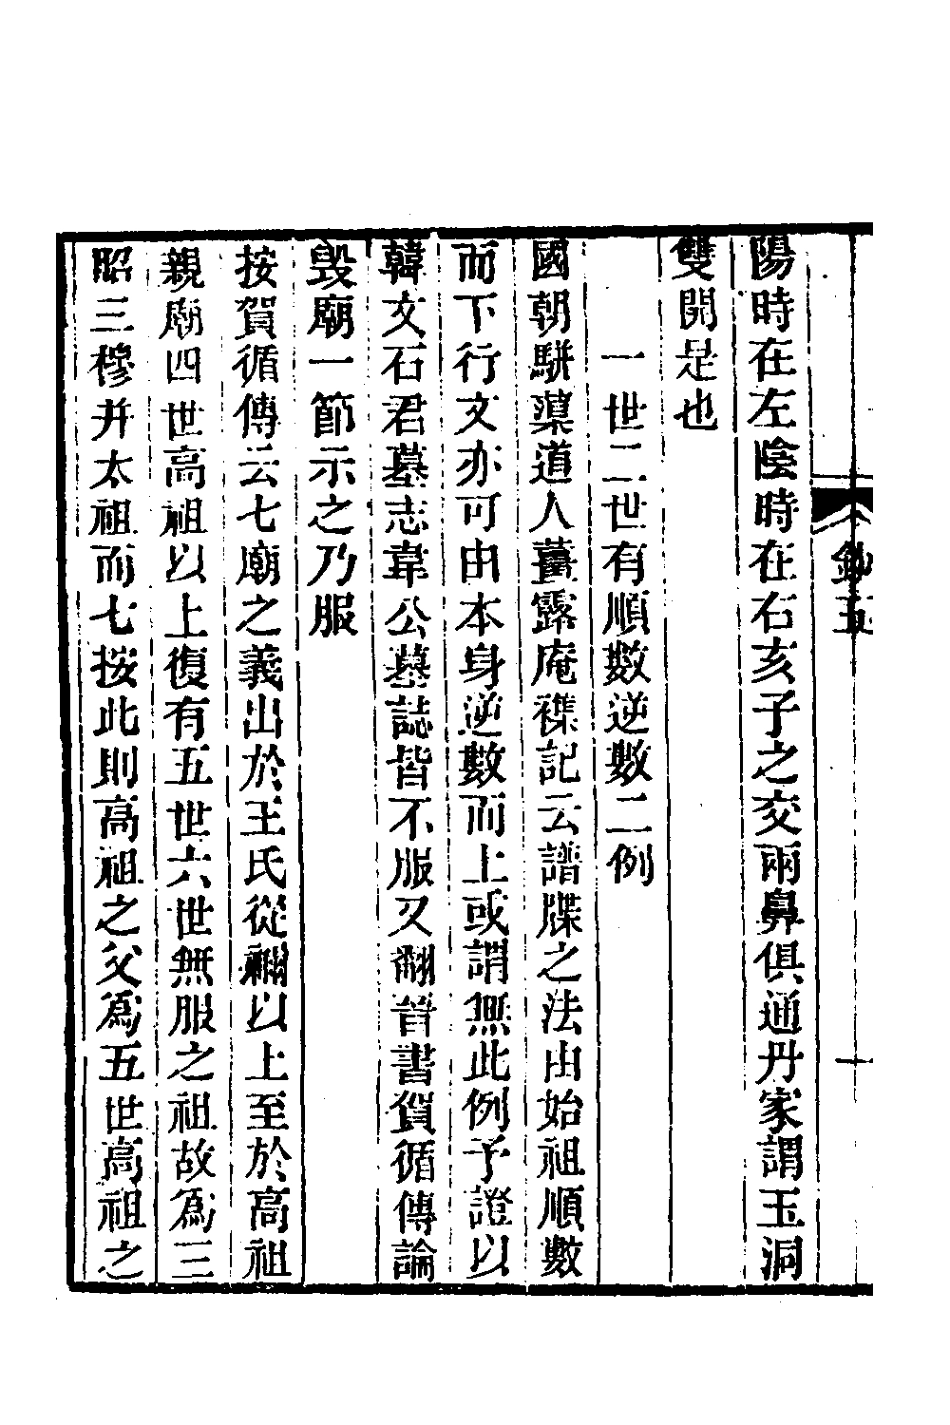 陽時在左陰時在右亥子之交兩鼻俱通丹家謂玉洞
雙開是也
一世二世有順數逆數二例
國朝駢蕖道人薑露庵襍記云譜牒之法由始祖順數
而下行文亦可由本身逆數而上或謂無此例予證以
韓文石君墓志韋公墓誌皆不服又翻晉書賀循傳論
毀廟一節示之乃服
按賀循傳云七廟之義出於王氏從禰以上至於高祖
親廟四世高祖以上復有五世六世無服之祖故為三
昭三穆并太祖而七按此則高祖之父為五世高祖之
鈔五